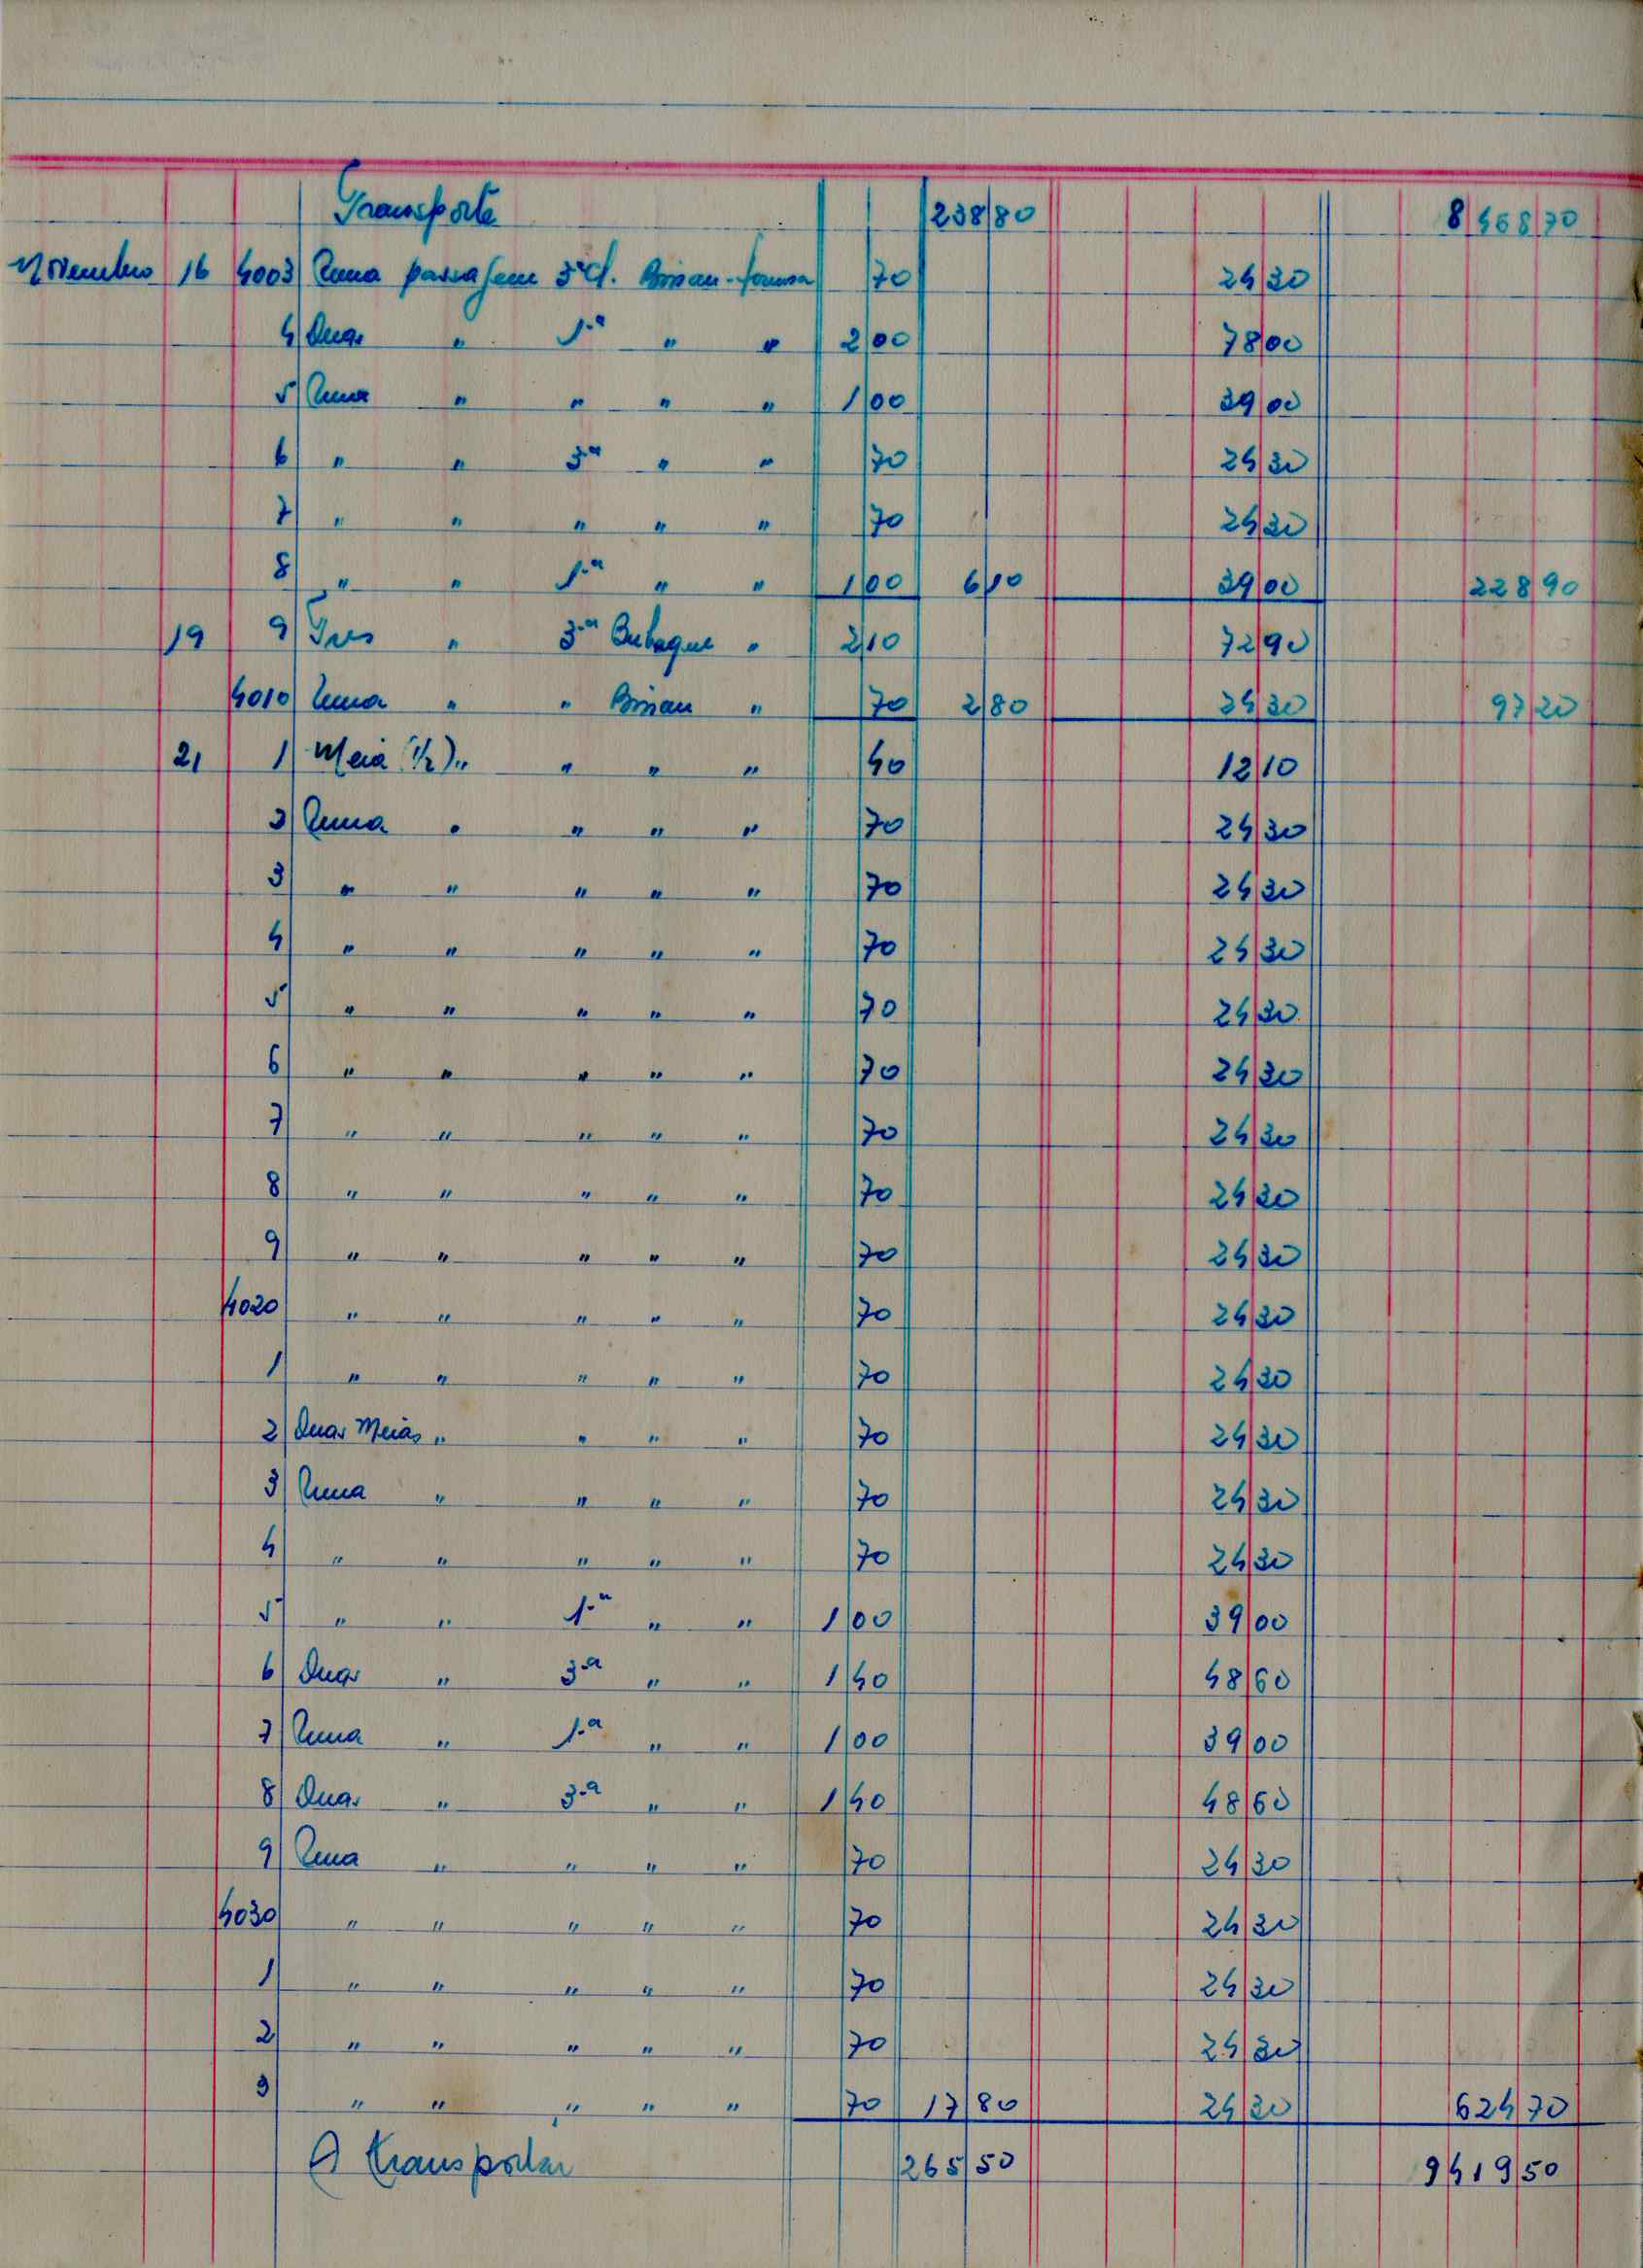 Transporte 238 80 8 468 70
Novembro 16 4003 Uma passagem 3ª cl. Bissau-formosa 70 24 30
4 Duas " 1.ª " " 2 00 78 00
5 Uma " " " " 1 00 39 00
6 " " 3ª " " 70 24 30
7 " " " " " 70 24 30
8 " " 1.ª " " 1 00 6 10 39 00 228 90
19 9 Tres " 3.ª Bubaque " 2 10 72 90
4010 Uma " " Bissau " 70 2 80 24 30 97 20
21 1 Meia (1/2) " " " " 40 12 10
2 Uma " " " " 70 24 30
3 " " " " " 70 24 30
4 " " " " " 70 24 30
5 " " " " " 70 24 30
6 " " " " " 70 24 30
7 " " " " " 70 24 30
8 " " " " " 70 24 30
9 " " " " " 70 24 30
4020 " " " " " 70 24 30
1 " " " " " 70 24 30
2 Duas Meias " " " " 70 24 30
3 Uma " " " " 70 24 30
4 " " " " " 70 24 30
5 " " 1.ª " " 1 00 39 00
6 Duas " 3.ª " " 1 40 48 60
7 Uma " 1.ª " " 1 00 39 00
8 Duas " 3.ª " " 1 40 48 60
9 Uma " " " " 70 24 30
4030 " " " " " 70 24 30
1 " " " " " 70 24 30
2 " " " " " 70 24 30
3 " " " " " 70 17 80 24 30 624 70
A transportar 265 50 9 419 50